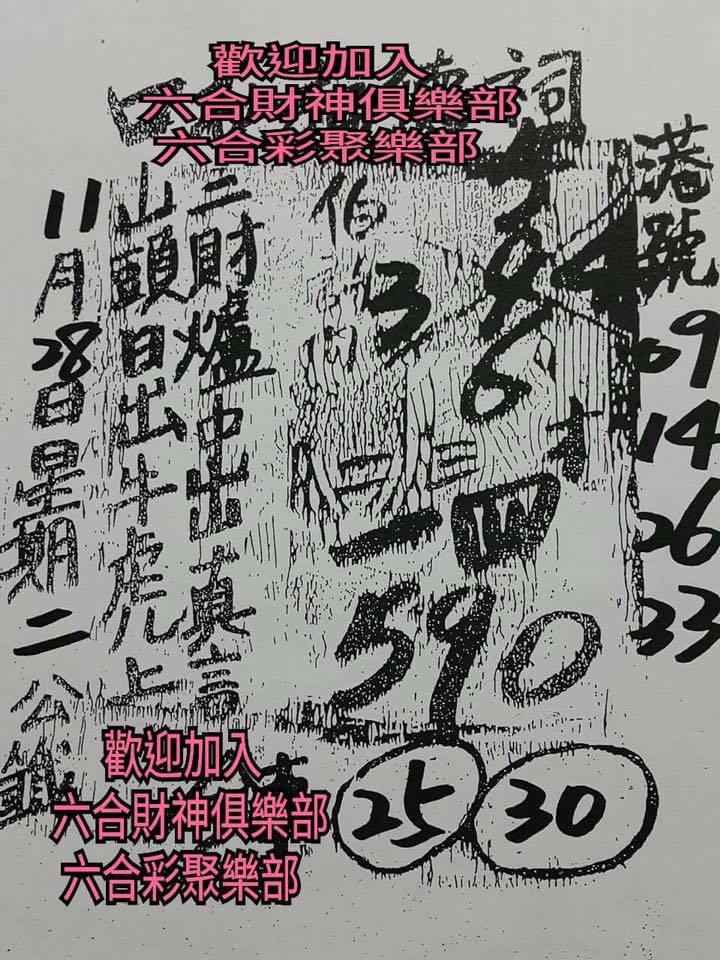 歡迎加入
六合財神俱樂部
六合彩聚樂部
詞
港號
09
14
26
33
伯
3
6
一四
590
二財爐中出真言
山頭日出牛虎上
11月28日星期二
25
30
歡迎加入
六合財神俱樂部
六合彩聚樂部